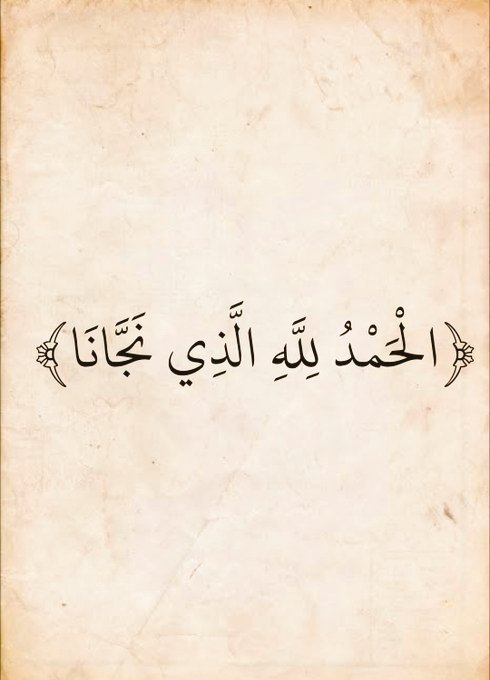 ﴿الْحَمْدُ لِلَّهِ الَّذِي نَجَّانَا﴾